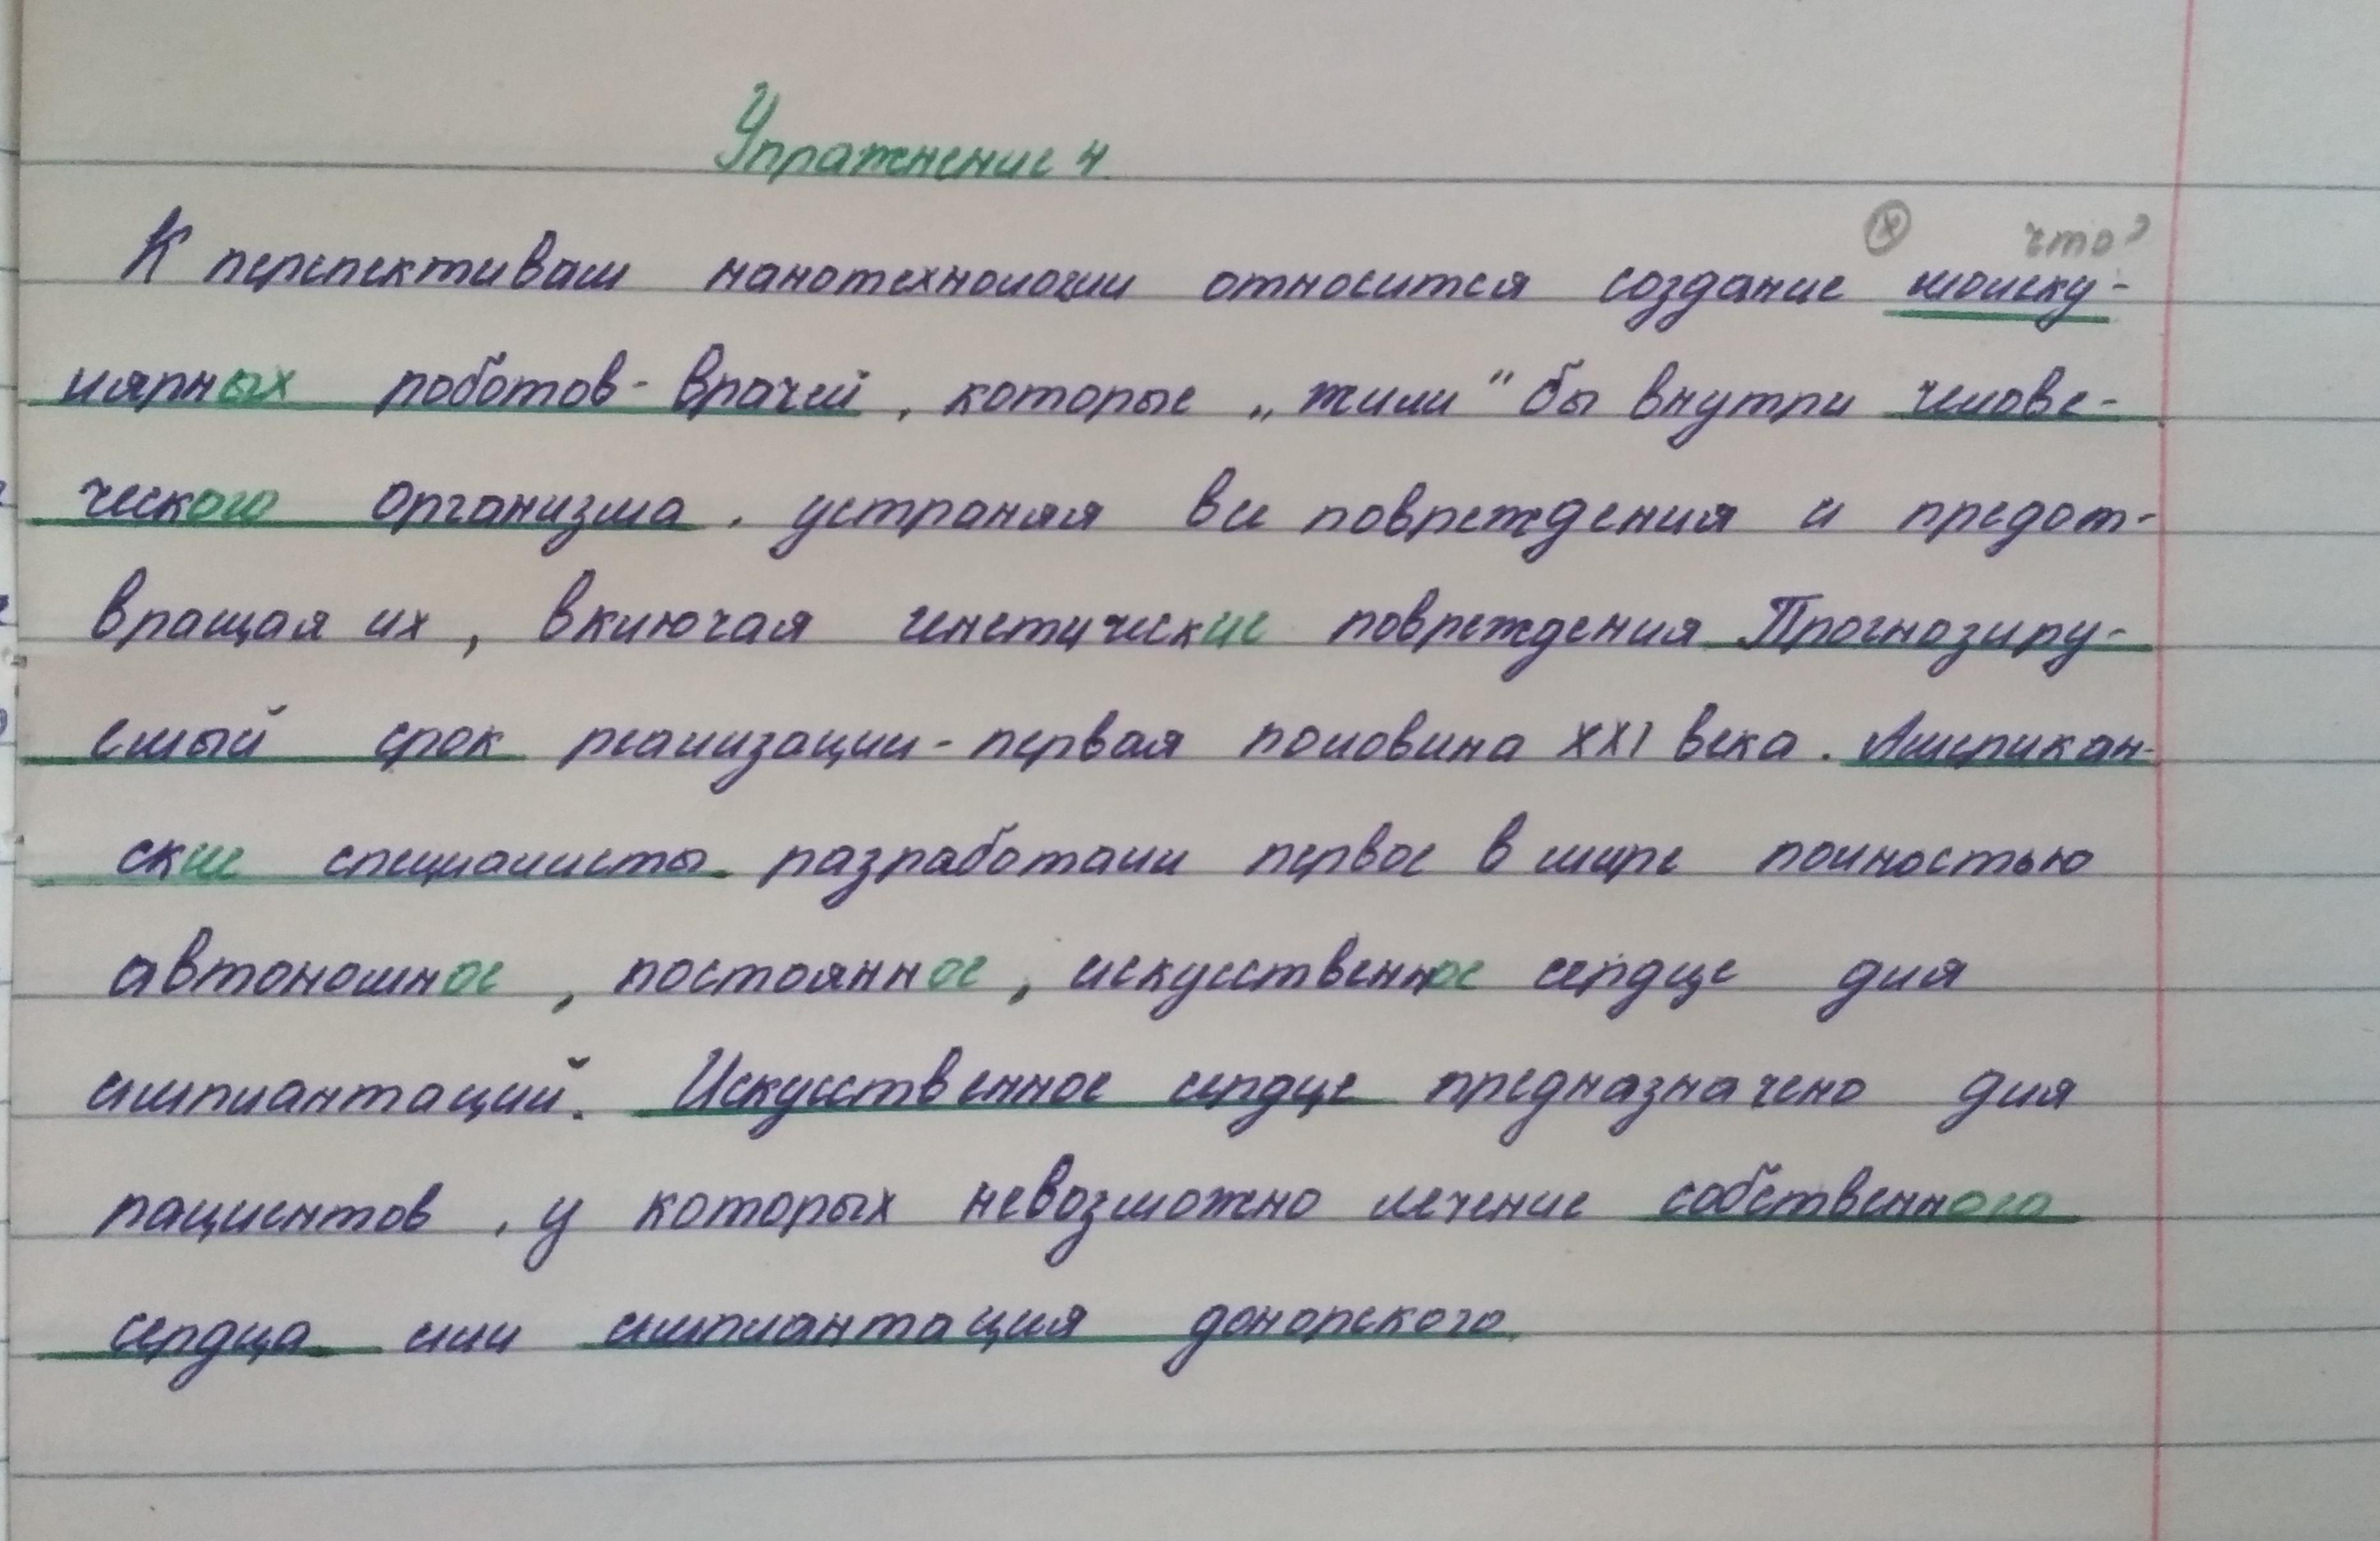 Упражнение 4
что?
К перспективам нанотехнологии относится создание молеку-
лярных роботов-врачей, которые „жили" бы внутри челове-
ческого организма, устраняя все повреждения и предот-
вращая их, включая генетические повреждения Прогнозиру-
емый срок реализации-первая половина XXI века. Американ-
ские специалисты разработали первое в мире полностью
автономное, постоянное, искусственное сердце для
имплантаций. Искусственное сердце предназначено для
пациентов, у которых невозможно лечение собственного
сердца или имплантация донорского.